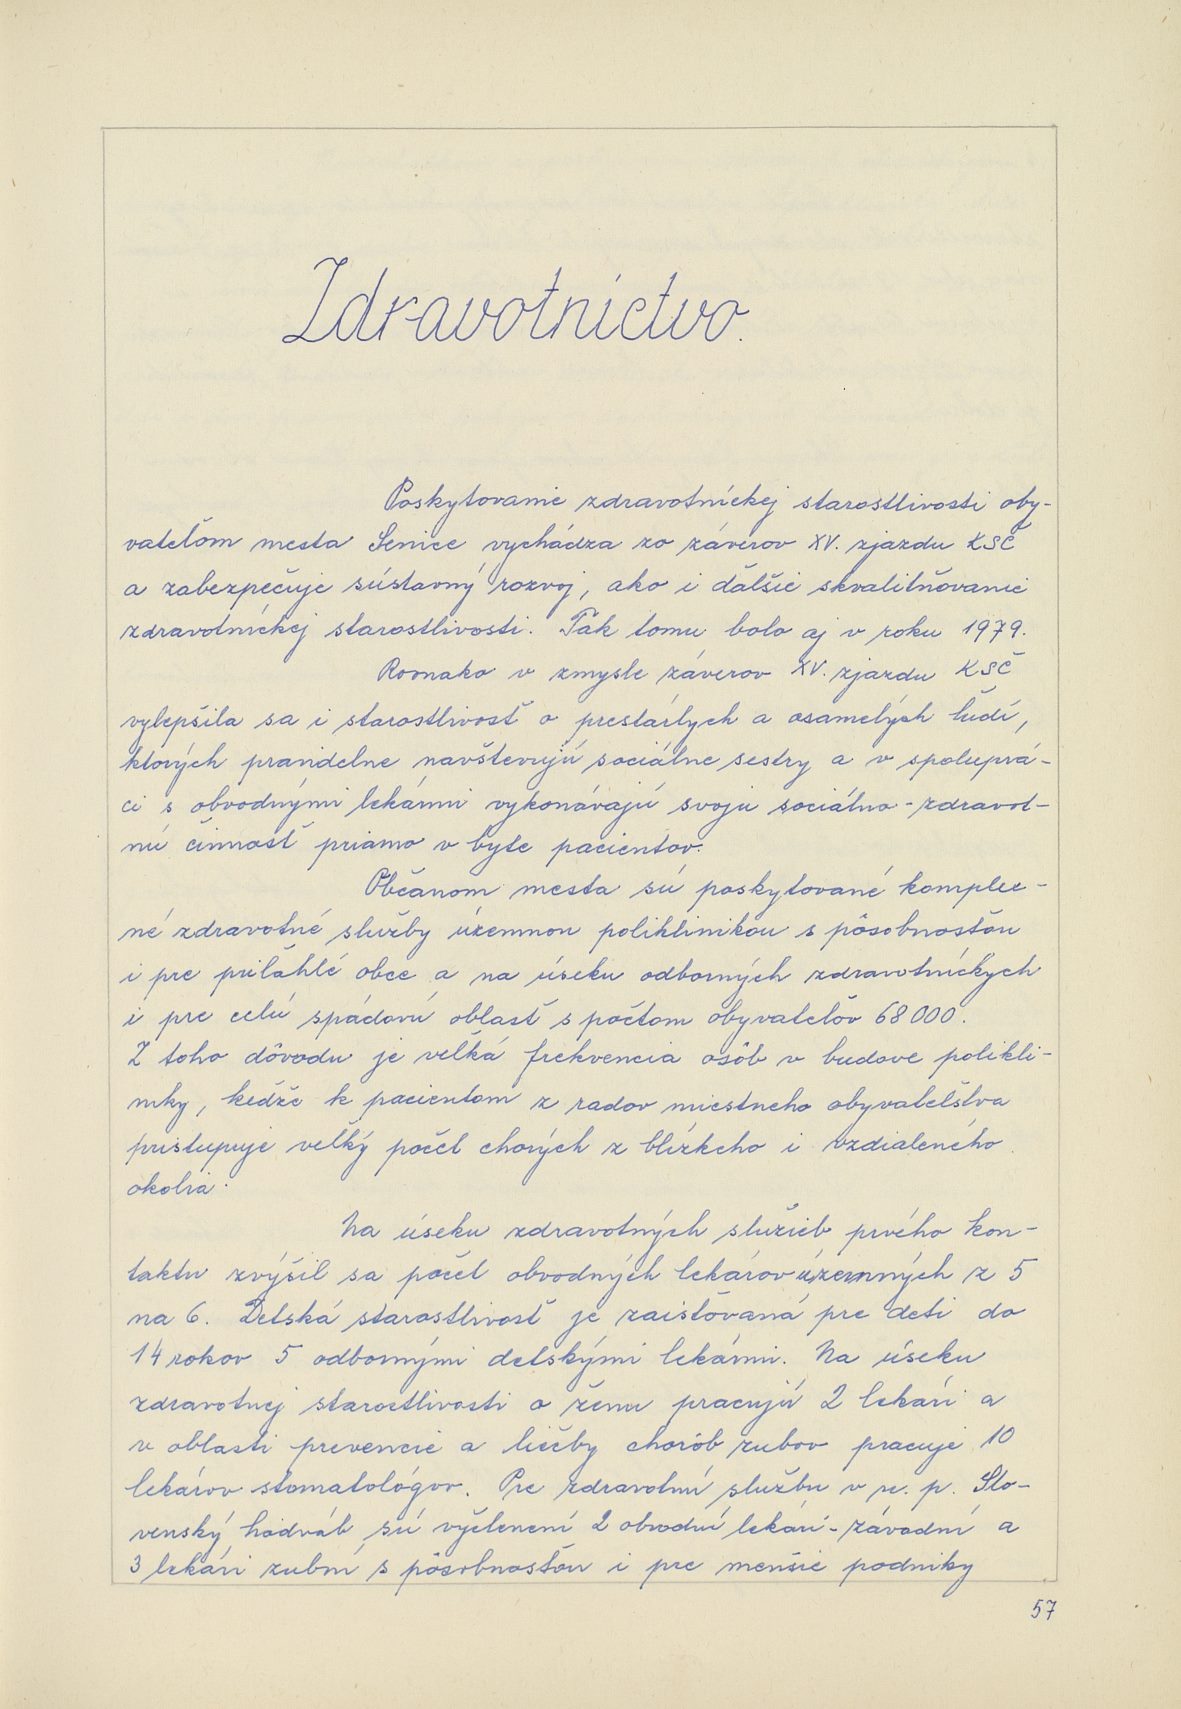 Zdravotníctvo.
Poskytovanie zdravotníckej starostlivosti oby-
vateľom mesta Senice vychádza zo záverov XV. zjazdu KSČ
a zabezpečuje sústavný rozvoj, ako i ďalšie skvalitňovanie
zdravotníckej starostlivosti. Tak tomu bolo aj v roku 1979.
Rovnako v zmysle záverov XV. zjazdu KSČ
vylepšila sa i starostlivosť o prestárlych a osamelých ľudí,
ktorých pravidelne navštevujú sociálne sestry a v spoluprá-
ci s obvodnými lekármi vykonávajú svoju sociálno-zdravot-
nú činnosť priamo v byte pacientov.
Občanom mesta sú poskytované komplex-
né zdravotné služby územnou poliklinikou s pôsobnosťou
i pre priľahlé obce a na úseku odborných zdravotníckych
i pre celú spádovú oblasť s počtom obyvateľov 68 000.
Z toho dôvodu je veľká frekvencia osôb v budove polikli-
niky, keďže k pacientom z radov miestneho obyvateľstva
pristupuje veľký počet chorých z blízkeho i vzdialeného
okolia.
Na úseku zdravotných služieb prvého kon-
taktu zvýšil sa počet obvodných lekárov územných z 5
na 6. Detská starostlivosť je zaisťovaná pre deti do
14 rokov 5 odbornými detskými lekármi. Na úseku
zdravotnej starostlivosti o ženu pracujú 2 lekári a
v oblasti prevencie a liečby chorôb zubov pracuje 10
lekárov stomatológov. Pre zdravotnú službu v n. p. Slo-
venský hodváb sú vyčlenení 2 obvodní lekári - závodní a
3 lekári zubní s pôsobnosťou i pre menšie podniky
57